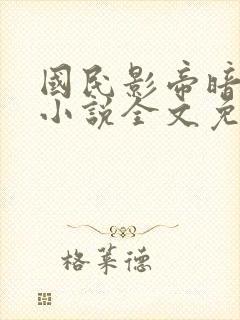 國民影帝暗
小說全文免
格萊德